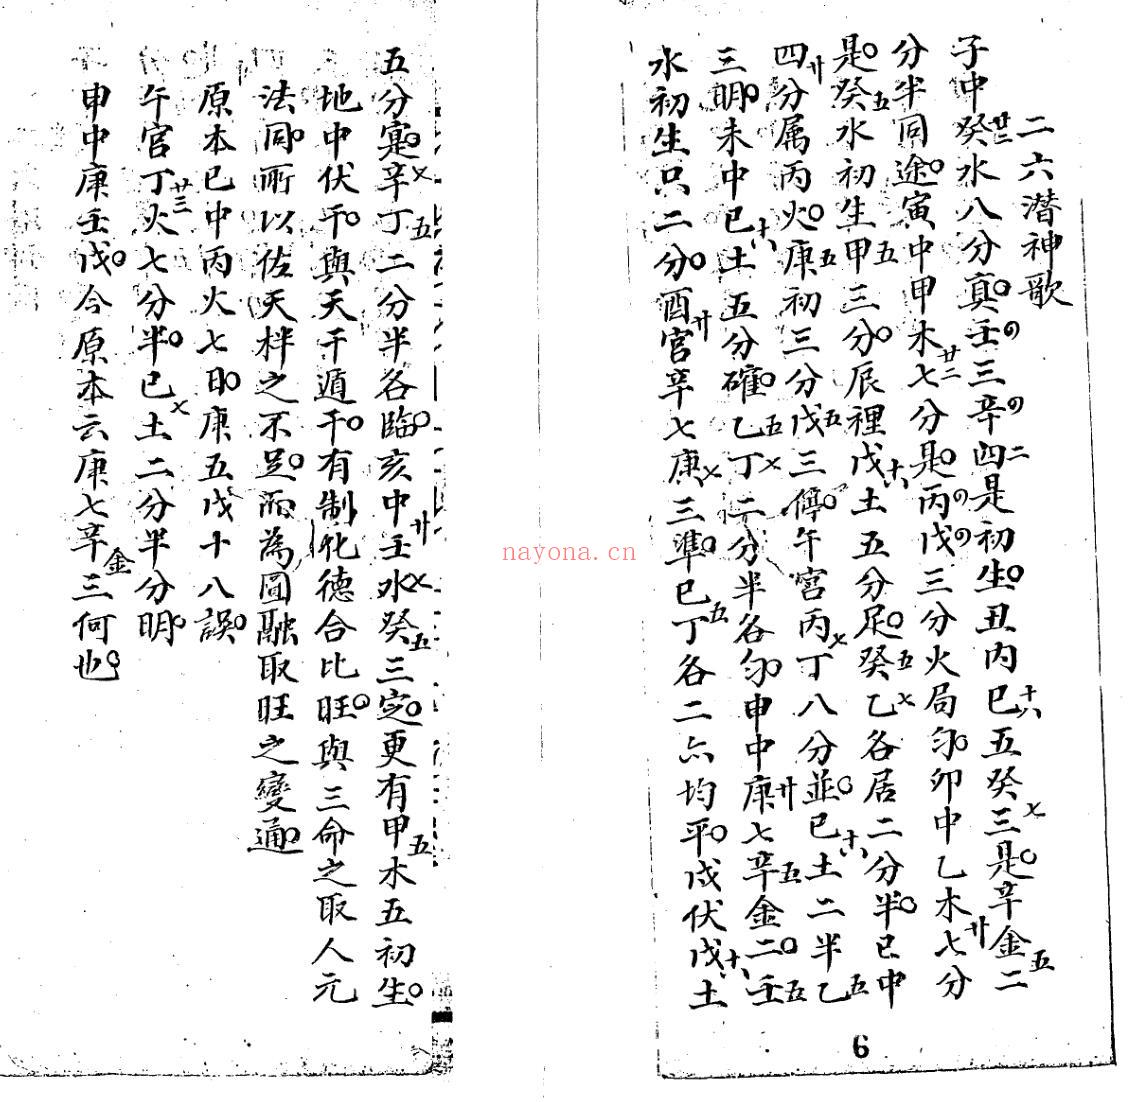 二六潜神歌
子中癸水八分真壬三辛四是初生丑内巳五癸三是辛金二
分半同途寅中甲木七分是丙戊三分火局匀卯中乙木七分
是癸水初生甲三分辰裡戊土五分足癸乙各居二分半巳中
四分属丙火庚初三分戊三停午宮丙丁八分並巳土二半乙
三明未中巳土五分確乙丁二分半各匀申中庚七辛金二壬
水初生只二分酉宮辛七庚三準巳丁各二亦均平戌伏戊土
五分寔辛丁二分半各臨亥中壬水癸三定更有甲木五初生
地中伏干與天干遁干有制化德合比旺與三命之取人元
法同所以佐天柈之不足而為圓融取旺之變通
原本巳中丙火七日庚五戊十八誤
午宮丁火七分半巳土二分半分明
申中庚壬戊今原本云庚七辛金三何也
6
nayona.cn